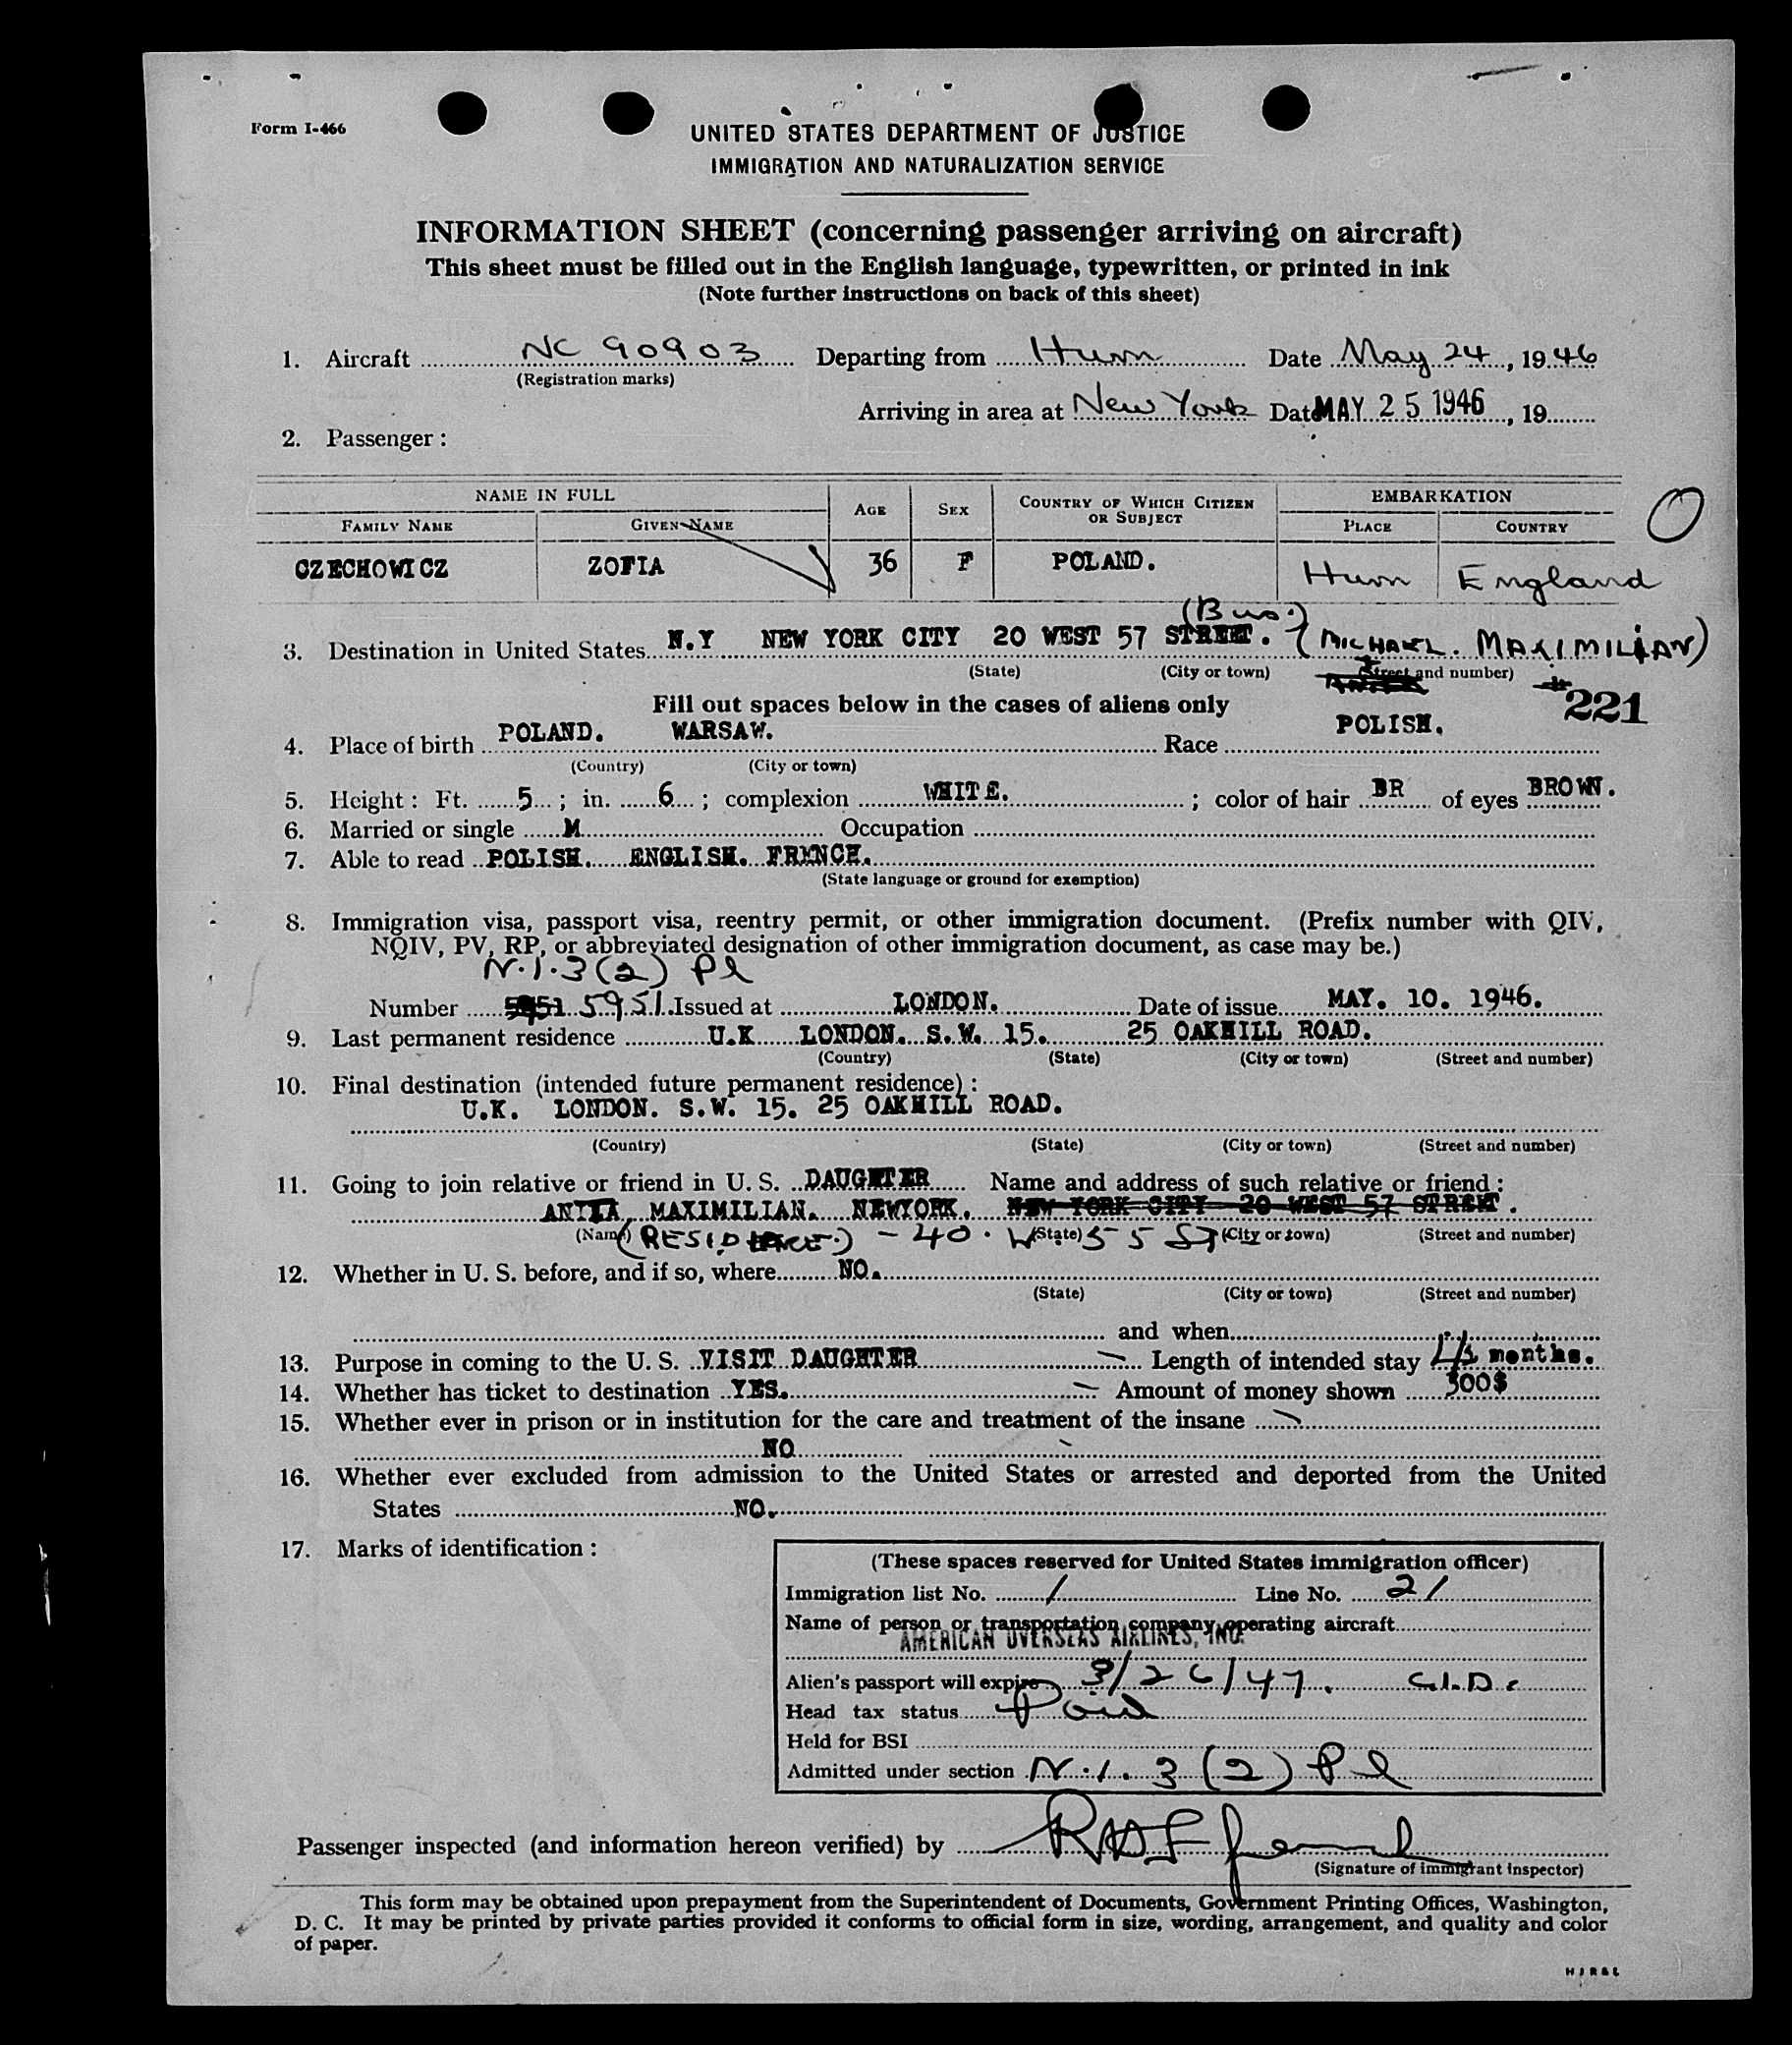 Form I-466
UNITED STATES DEPARTMENT OF JUSTICE
IMMIGRATION AND NATURALIZATION SERVICE
INFORMATION SHEET (concerning passenger arriving on aircraft)
This sheet must be filled out in the English language, typewritten, or printed in ink
(Note further instructions on back of this sheet)
1. Aircraft NC 90903 Departing from Hurn Date May 24, 1946
(Registration marks)
Arriving in area at New York Date MAY 25 1946, 19
2. Passenger:
NAME IN FULL AGE SEX COUNTRY OF WHICH CITIZEN OR SUBJECT EMBARKATION
FAMILY NAME GIVEN NAME PLACE COUNTRY
CZECHOWICZ ZOFIA 36 F POLAND. Hurn England
(Bus.)
3. Destination in United States N.Y NEW YORK CITY 20 WEST 57 STREET. (MICHAEL. MAXIMILIAN)
(State) (City or town) (Street and number)
Fill out spaces below in the cases of aliens only #221
4. Place of birth POLAND. WARSAW. Race POLISH.
(Country) (City or town)
5. Height: Ft. 5; in. 6; complexion WHITE.; color of hair BR of eyes BROWN.
6. Married or single M Occupation
7. Able to read POLISH. ENGLISH. FRYNCH.
(State language or ground for exemption)
8. Immigration visa, passport visa, reentry permit, or other immigration document. (Prefix number with QIV,
NQIV, PV, RP, or abbreviated designation of other immigration document, as case may be.)
N.I.3(2) Pl
Number 5951 Issued at LONDON. Date of issue MAY. 10. 1946.
9. Last permanent residence U.K LONDON. S.W. 15. 25 OAKHILL ROAD.
(Country) (State) (City or town) (Street and number)
10. Final destination (intended future permanent residence):
U.K. LONDON. S.W. 15. 25 OAKHILL ROAD.
(Country) (State) (City or town) (Street and number)
11. Going to join relative or friend in U. S. DAUGHTER Name and address of such relative or friend:
MAXIMILIAN. NEWYORK. NEW YORK CITY 20 WEST 57 STREET.
(Name) (State) (City or town) (Street and number)
(RESIDENCE.) - 40. W 55 ST
12. Whether in U. S. before, and if so, where NO.
(State) (City or town) (Street and number)
and when
13. Purpose in coming to the U. S. VISIT DAUGHTER Length of intended stay 4 months.
14. Whether has ticket to destination YES. Amount of money shown 300$
15. Whether ever in prison or in institution for the care and treatment of the insane
NO
16. Whether ever excluded from admission to the United States or arrested and deported from the United
States NO.
17. Marks of identification:
(These spaces reserved for United States immigration officer)
Immigration list No. 1 Line No. 21
Name of person or transportation company operating aircraft
AMERICAN OVERSEAS AIRLINES, INC.
Alien's passport will expire 3/26/47. C.I.D.
Head tax status Paid
Held for BSI
Admitted under section N.I. 3 (2) Pl
Passenger inspected (and information hereon verified) by
(Signature of immigrant inspector)
This form may be obtained upon prepayment from the Superintendent of Documents, Government Printing Offices, Washington,
D. C. It may be printed by private parties provided it conforms to official form in size, wording, arrangement, and quality and color
of paper.